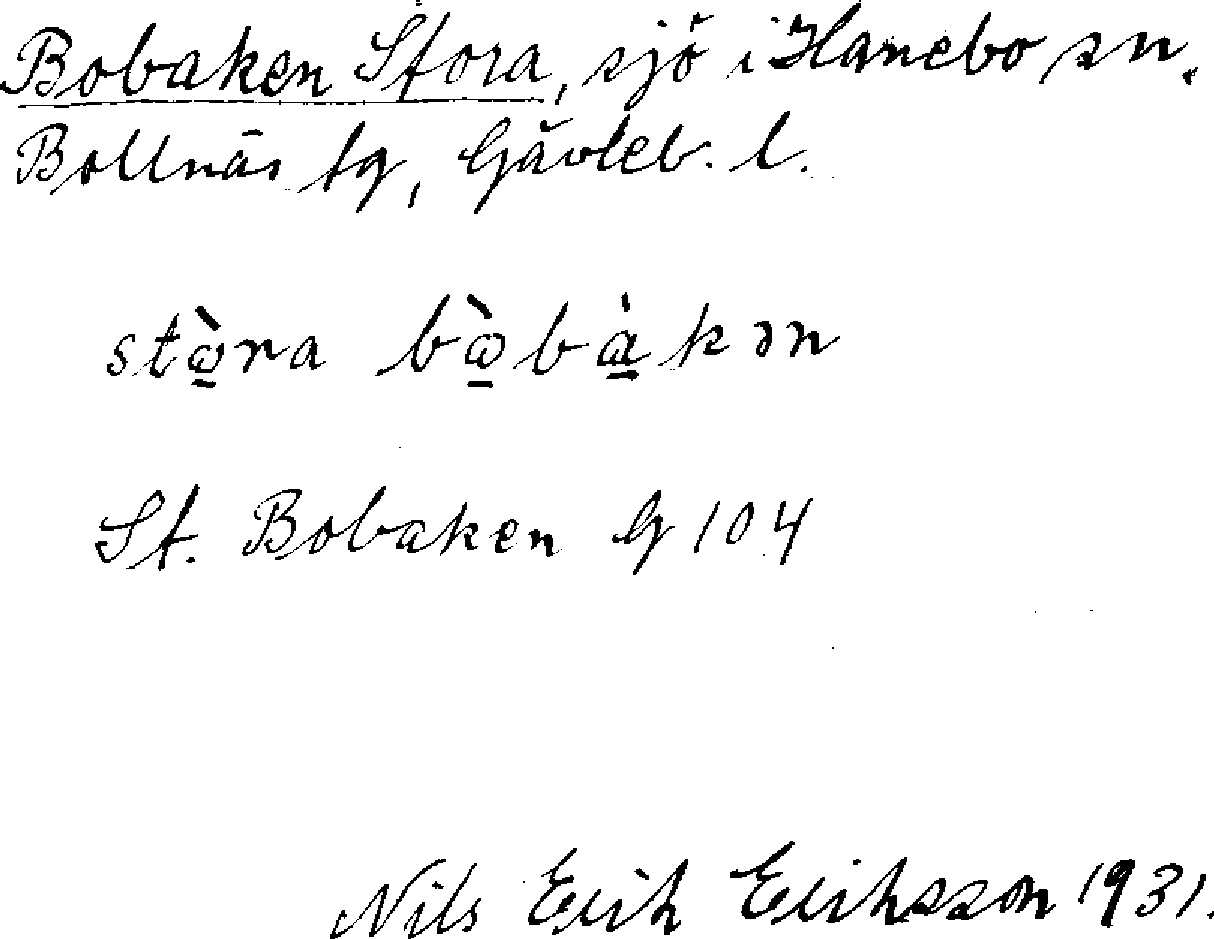 Bobaken Stora, sjö i Hanebo sn.
Bollnäs tg, Gävleb. l.
stὼ̲ra bὼ̲bà̲kən
St. Bobaken G 104
Nils Erik Eriksson 1931.